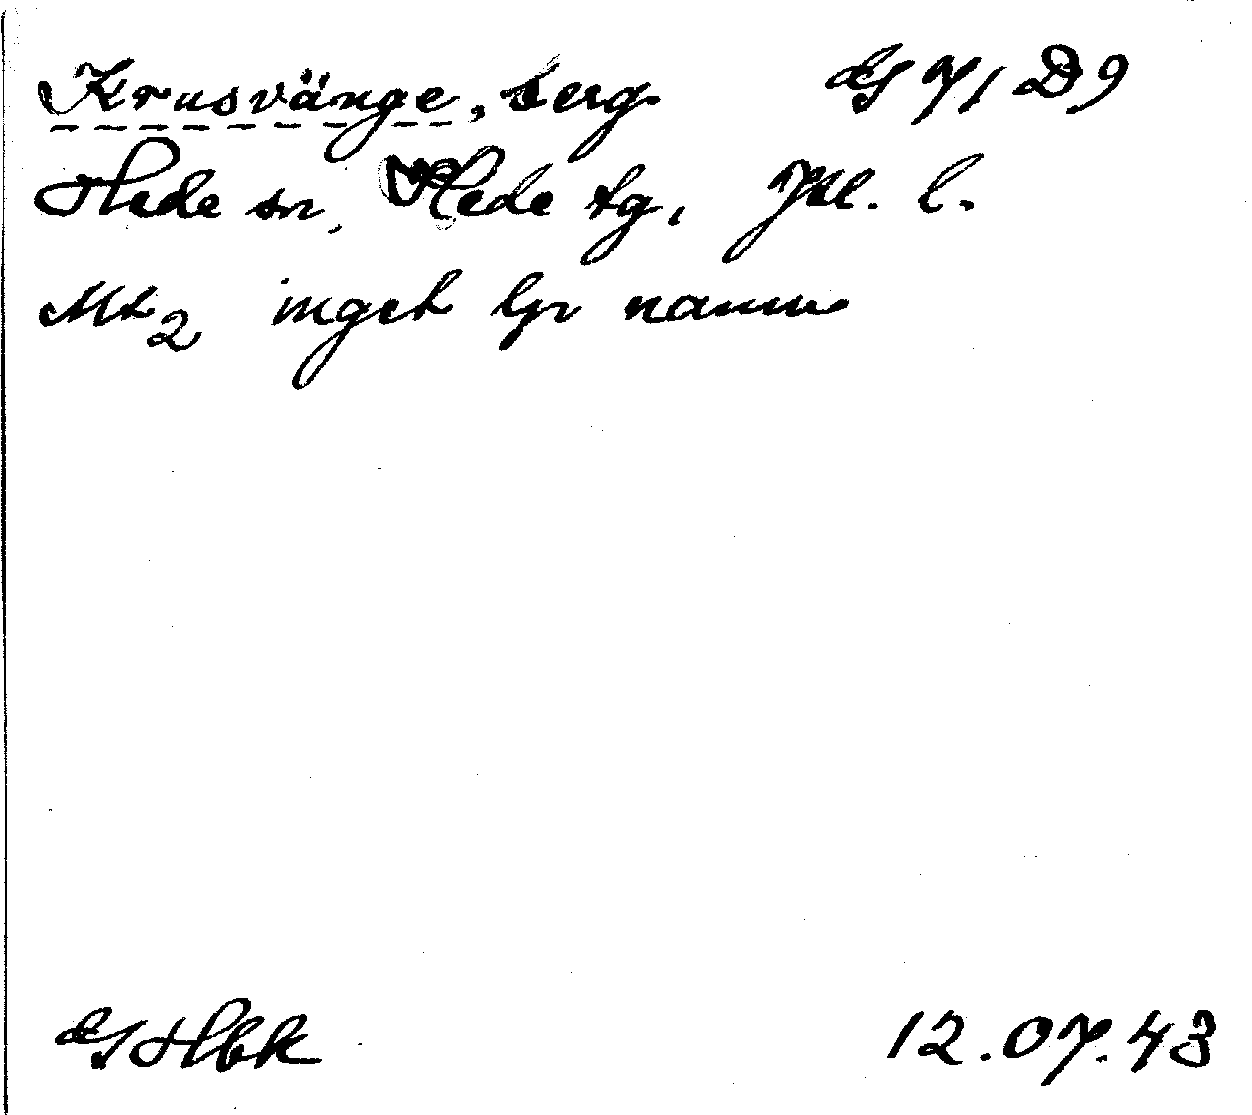 Krusvänge, berg. GS 7/1 D9
Hede sn, Hede tg, Jtl. l.
Mt2 inget ljr namn
GSHbk 12.07.43